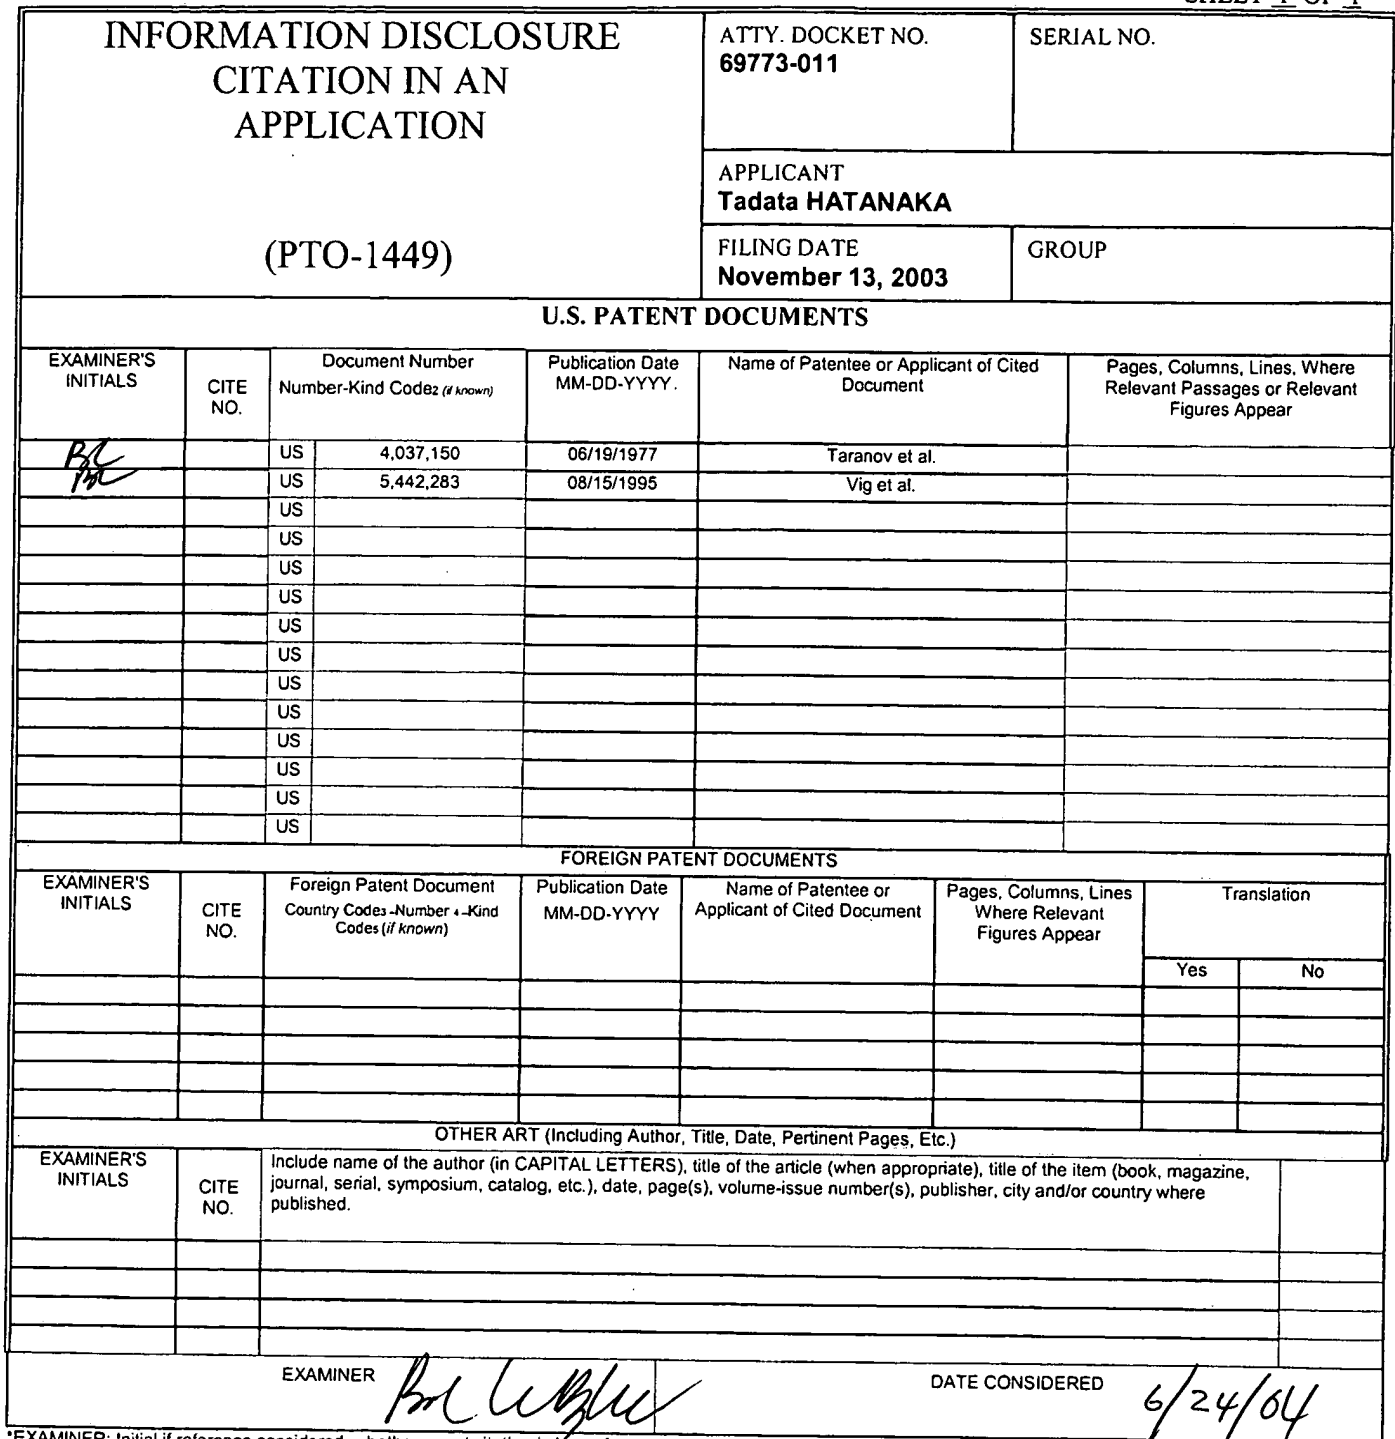 INFORMATION DISCLOSURE
CITATION IN AN
APPLICATION
(PTO-1449)
ATTY. DOCKET NO.
69773-011
SERIAL NO.
APPLICANT
Tadata HATANAKA
FILING DATE
November 13, 2003
GROUP
U.S. PATENT DOCUMENTS
EXAMINER'S
INITIALS
CITE
NO.
Document Number
Number-Kind Code2 (if known)
Publication Date
MM-DD-YYYY.
Name of Patentee or Applicant of Cited
Document
Pages, Columns, Lines, Where
Relevant Passages or Relevant
Figures Appear
US 4,037,150 06/19/1977 Taranov et al.
US 5,442,283 08/15/1995 Vig et al.
US
US
US
US
US
US
US
US
US
US
US
US
FOREIGN PATENT DOCUMENTS
EXAMINER'S
INITIALS
CITE
NO.
Foreign Patent Document
Country Code3 -Number 4 -Kind
Code5 (if known)
Publication Date
MM-DD-YYYY
Name of Patentee or
Applicant of Cited Document
Pages, Columns, Lines
Where Relevant
Figures Appear
Translation
Yes No
OTHER ART (Including Author, Title, Date, Pertinent Pages, Etc.)
EXAMINER'S
INITIALS
CITE
NO.
Include name of the author (in CAPITAL LETTERS), title of the article (when appropriate), title of the item (book, magazine,
journal, serial, symposium, catalog, etc.), date, page(s), volume-issue number(s), publisher, city and/or country where
published.
EXAMINER
DATE CONSIDERED 6/24/04